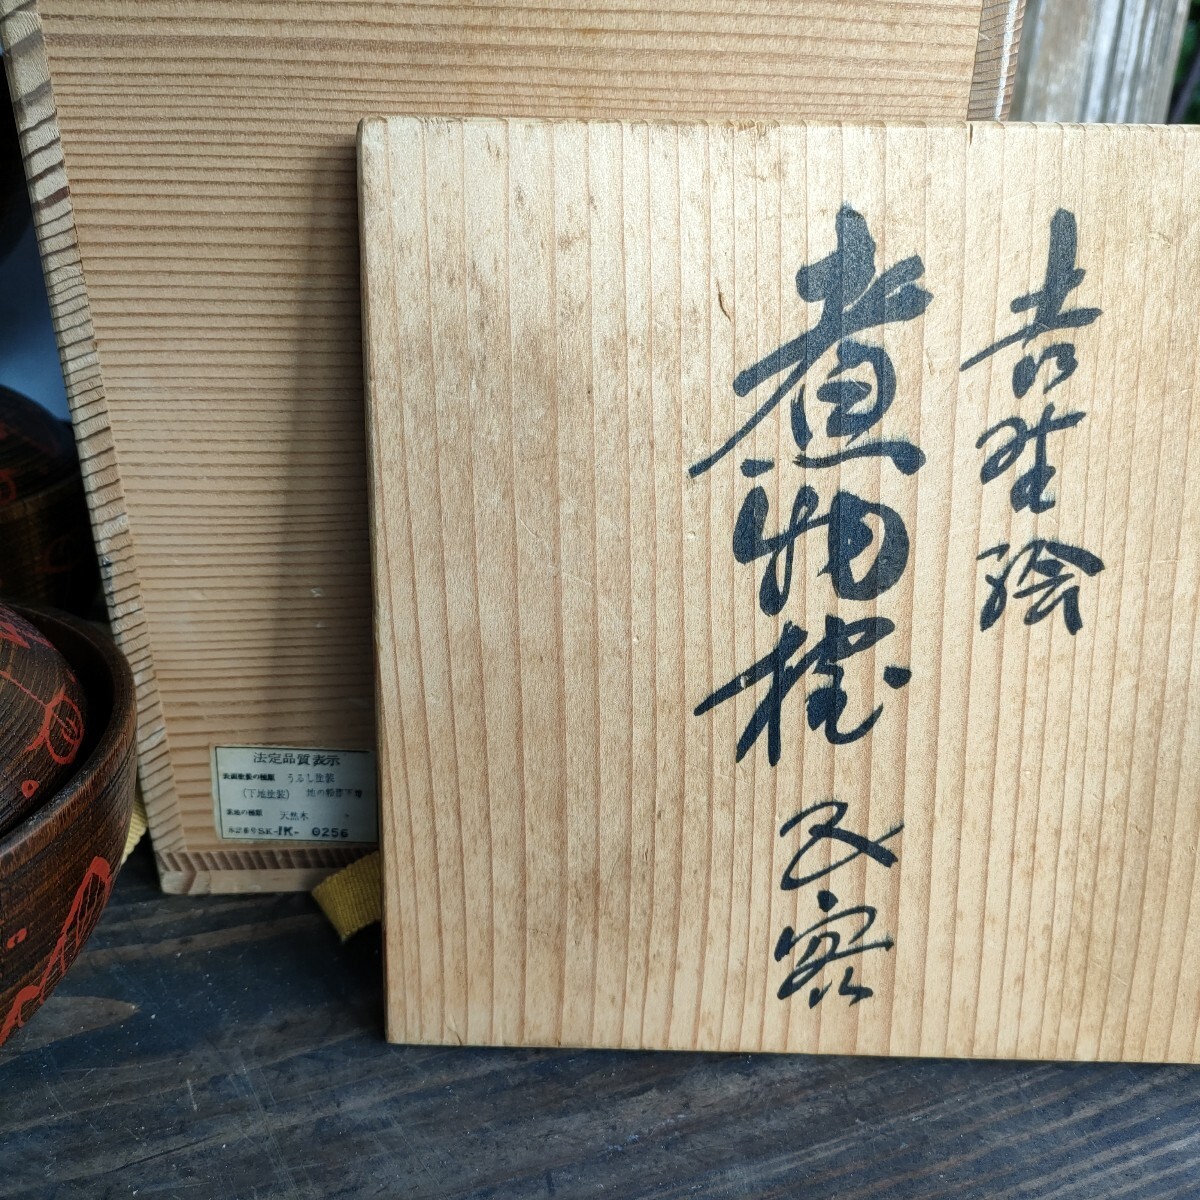 吉野絵
煮物椀 五客
法定品質表示
表面塗装の種類 うるし塗装
(下地塗装) 地の粉
素地の種類 天然木
SK-1K-0256